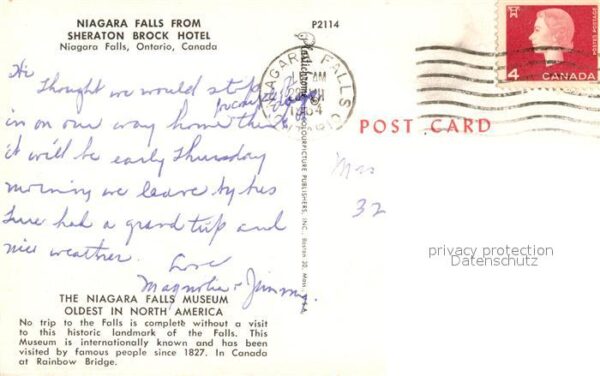 NIAGARA FALLS FROM
SHERATON BROCK HOTEL
Niagara Falls, Ontario, Canada
Hi
Thought we would stop
in on our way home think
it will be early Thursday
morning we leave by bus
Sure had a grand trip and
nice weather.
Love
Magnolia + Jimmy.
THE NIAGARA FALLS MUSEUM
OLDEST IN NORTH AMERICA
No trip to the Falls is complete without a visit
to this historic landmark of the Falls. This
Museum is internationally known and has been
visited by famous people since 1827. In Canada
at Rainbow Bridge.
P2114
Plastichrome
COLOURPICTURE PUBLISHERS, INC., Boston 30, Mass., U.S.A.
NIAGARA FALLS
AM
4 CANADA
POST CARD
Mrs
32
privacy protection
Datenschutz